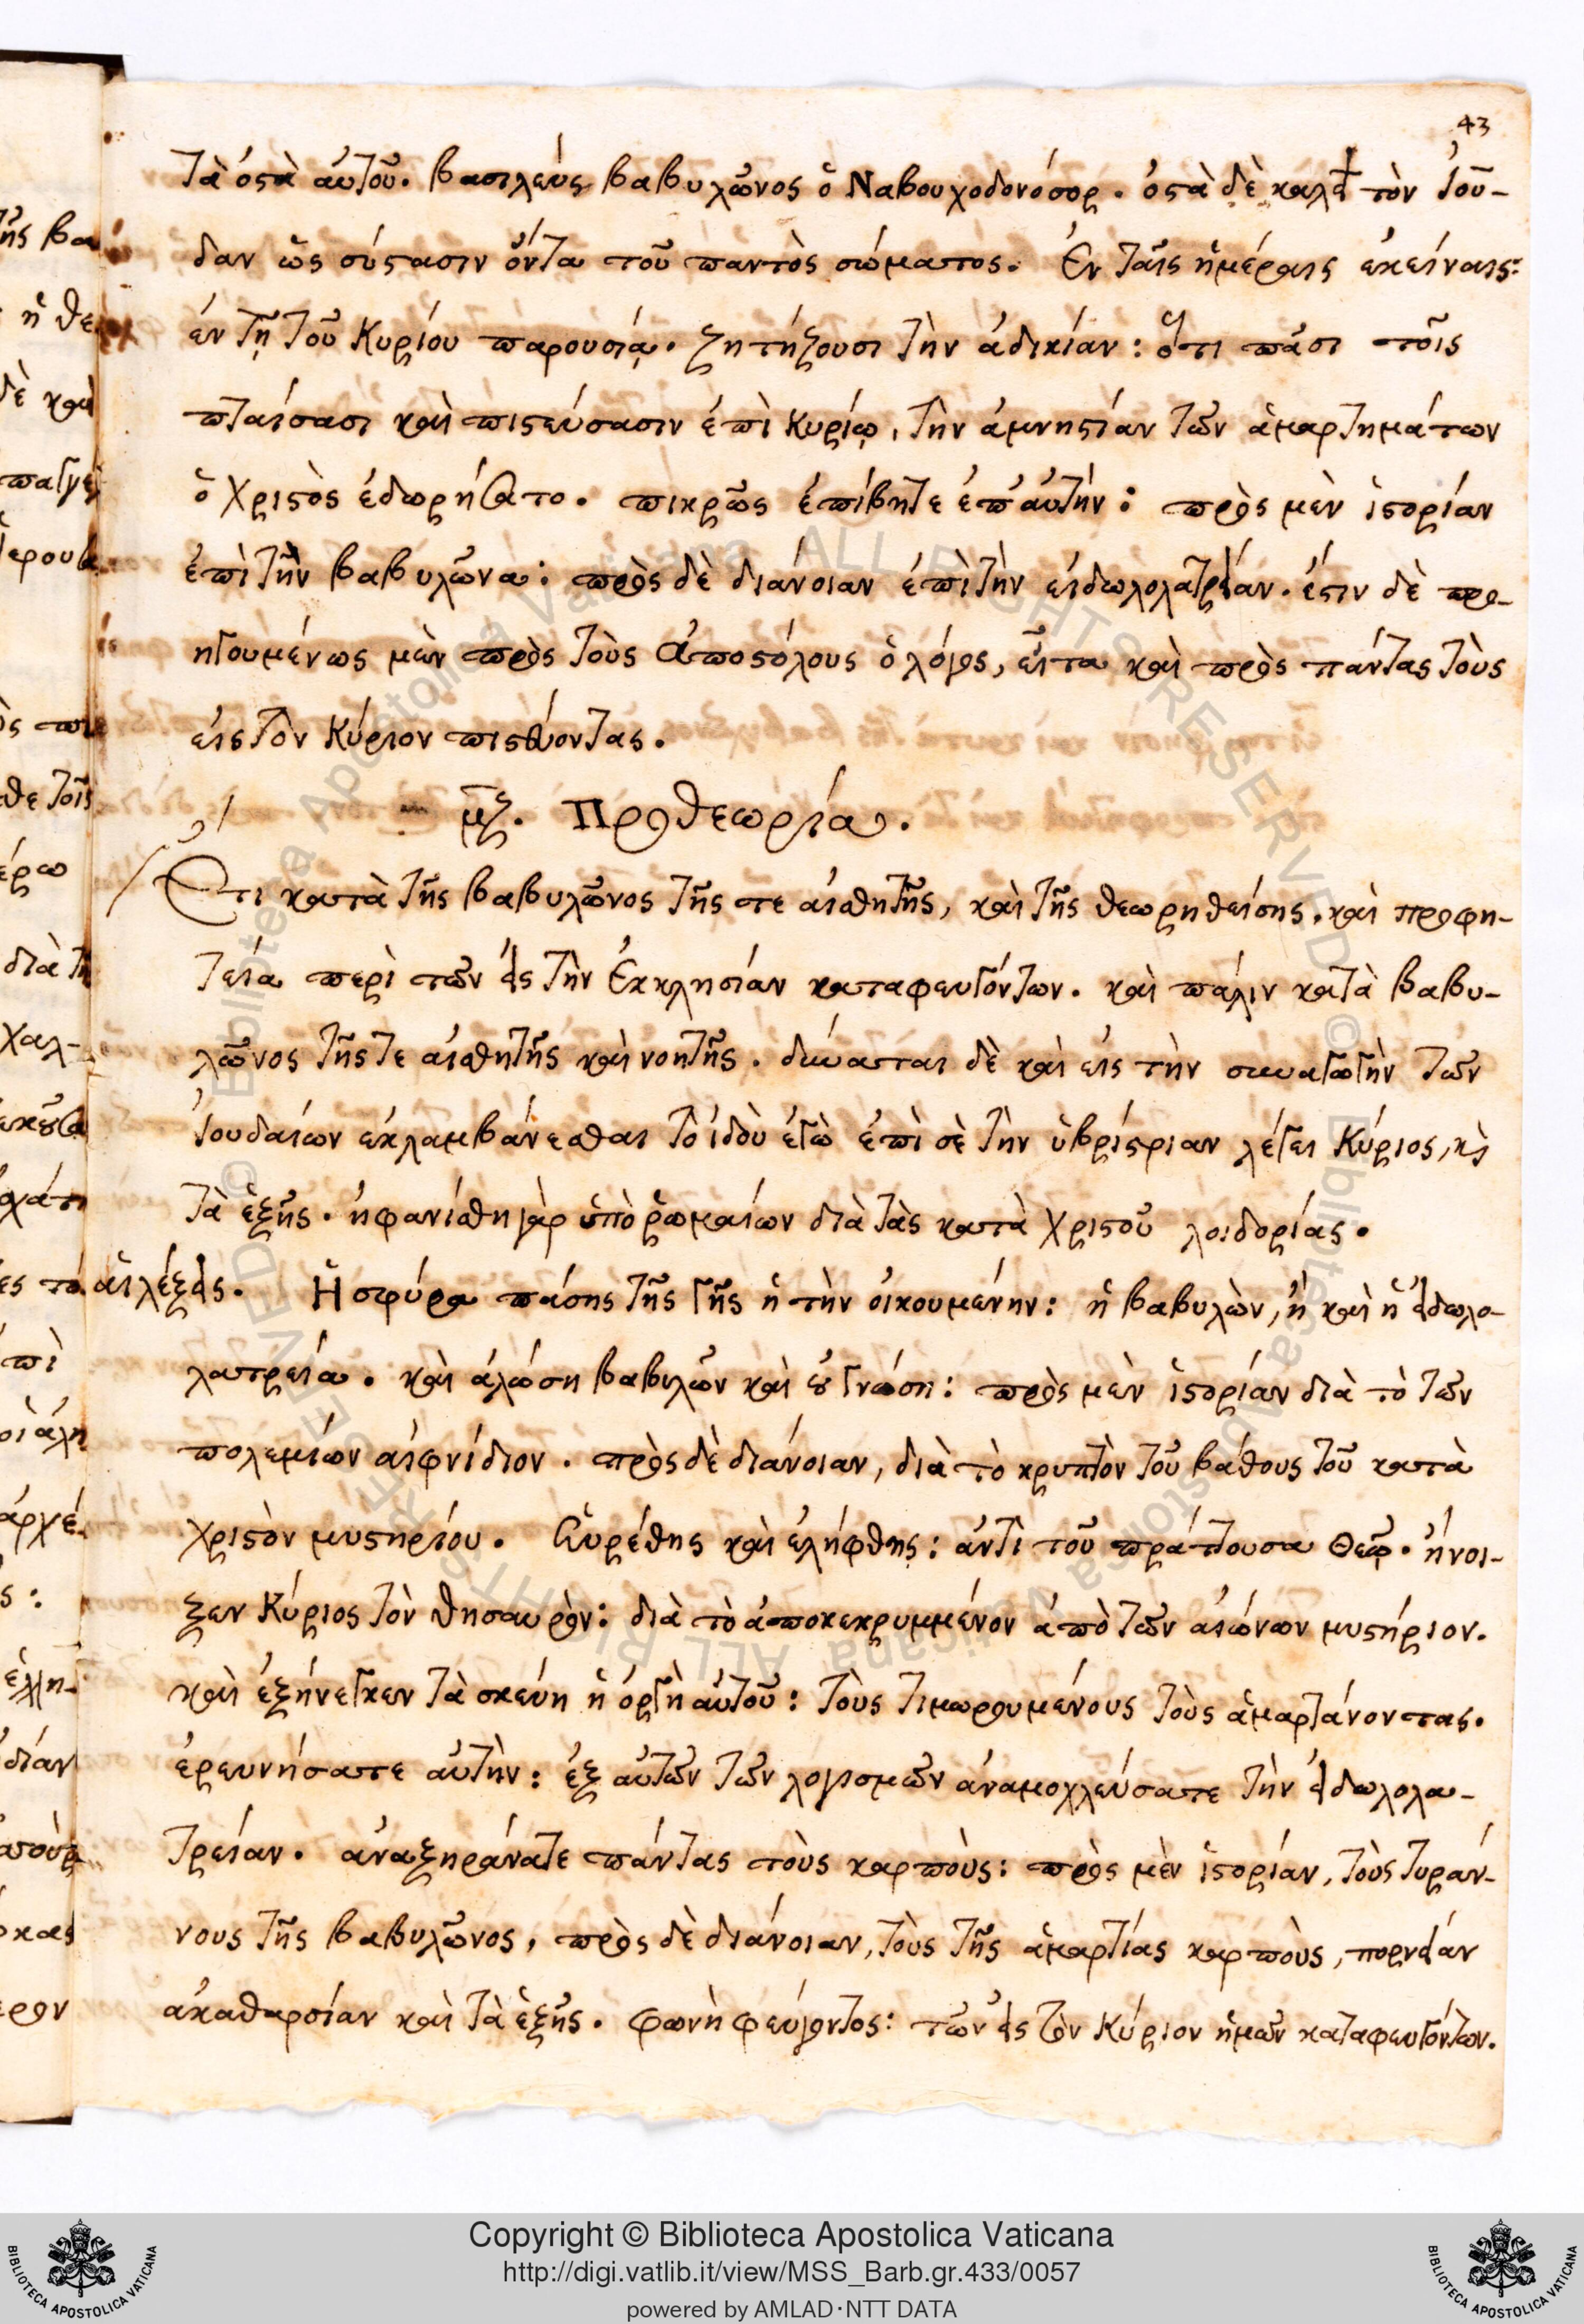 43
τὰ ὀστὰ αὐτοῦ. βασιλεὺς βαβυλῶνος ὁ Ναβουχοδονόσορ. ὀστὰ δὲ καλεῖ τὸν Ἰού-
δαν ὡς σύστασιν ὄντα τοῦ παντὸς σώματος. Ἐν ταῖς ἡμέραις ἐκείναις:
ἐν τῇ τοῦ Κυρίου παρουσίᾳ. ζητήσουσι τὴν ἀδικίαν: ὅτι πᾶσι τοῖς
πταίσασι καὶ πιστεύσασιν ἐπὶ Κυρίῳ, τὴν ἀμνηστίαν τῶν ἁμαρτημάτων
ὁ Χριστὸς ἐδωρήσατο. πικρῶς ἐπίβητε ἐπ' αὐτήν: πρὸς μὲν ἱστορίαν
ἐπὶ τὴν βαβυλῶνα: πρὸς δὲ διάνοιαν ἐπὶ τὴν εἰδωλολατρείαν. ἔστιν δὲ προ-
ηγουμένως μὲν πρὸς τοὺς ἀποστόλους ὁ λόγος, εἶτα καὶ πρὸς πάντας τοὺς
εἰς τὸν Κύριον πιστεύοντας.
μζ. Προθεωρία.
Ὅτι κατὰ τῆς βαβυλῶνος τῆς τε αἰσθητῆς, καὶ τῆς θεωρηθείσης. καὶ προφη-
τεία περὶ τῶν εἰς τὴν Ἐκκλησίαν καταφευγόντων. καὶ πάλιν κατὰ βαβυ-
λῶνος τῆς τε αἰσθητῆς καὶ νοητῆς. δύναται δὲ καὶ εἰς τὴν συναγωγὴν τῶν
Ἰουδαίων ἐκλαμβάνεσθαι τὸ ἰδοὺ ἐγὼ ἐπὶ σὲ τὴν ὑβρίστριαν λέγει Κύριος, κὶ
τὰ ἑξῆς. ἠφανίσθη γὰρ ὑπὸ ῥωμαίων διὰ τὰς κατὰ Χριστοῦ λοιδορίας.
αἱ λέξεις. Ἡ σφύρα πάσης τῆς γῆς ἡ τὴν οἰκουμένην: ἡ βαβυλὼν, ἢ καὶ ἡ εἰδωλο-
λατρεία. καὶ ἁλώσῃ βαβυλὼν καὶ οὐ γνώσῃ: πρὸς μὲν ἱστορίαν διὰ τὸ τῶν
πολεμίων αἰφνίδιον. πρὸς δὲ διάνοιαν, διὰ τὸ κρυπτὸν τοῦ βάθους τοῦ κατὰ
Χριστὸν μυστηρίου. Εὑρέθης καὶ ἐλήφθης: ἀντὶ τοῦ πράττουσα Θεῷ. ἤνοι-
ξεν Κύριος τὸν θησαυρὸν: διὰ τὸ ἀποκεκρυμμένον ἀπὸ τῶν αἰώνων μυστήριον.
καὶ ἐξήνεγκεν τὰ σκεύη ἡ ὀργὴ αὐτοῦ: τοὺς τιμωρουμένους τοὺς ἁμαρτάνοντας.
ἐρευνήσατε αὐτὴν: ἐξ αὐτῶν τῶν λογισμῶν ἀναμοχλεύσατε τὴν εἰδωλολα-
τρείαν. ἀναξηράνατε πάντας τοὺς καρποὺς: πρὸς μὲν ἱστορίαν, τοὺς τυράν-
νους τῆς βαβυλῶνος, πρὸς δὲ διάνοιαν, τοὺς τῆς ἁμαρτίας καρποὺς, πορνείαν
ἀκαθαρσίαν καὶ τὰ ἑξῆς. φωνὴ φεύγοντος: τῶν εἰς τὸν Κύριον ἡμῶν καταφευγόντων.
Copyright © Biblioteca Apostolica Vaticana
http://digi.vatlib.it/view/MSS_Barb.gr.433/0057
powered by AMLAD·NTT DATA